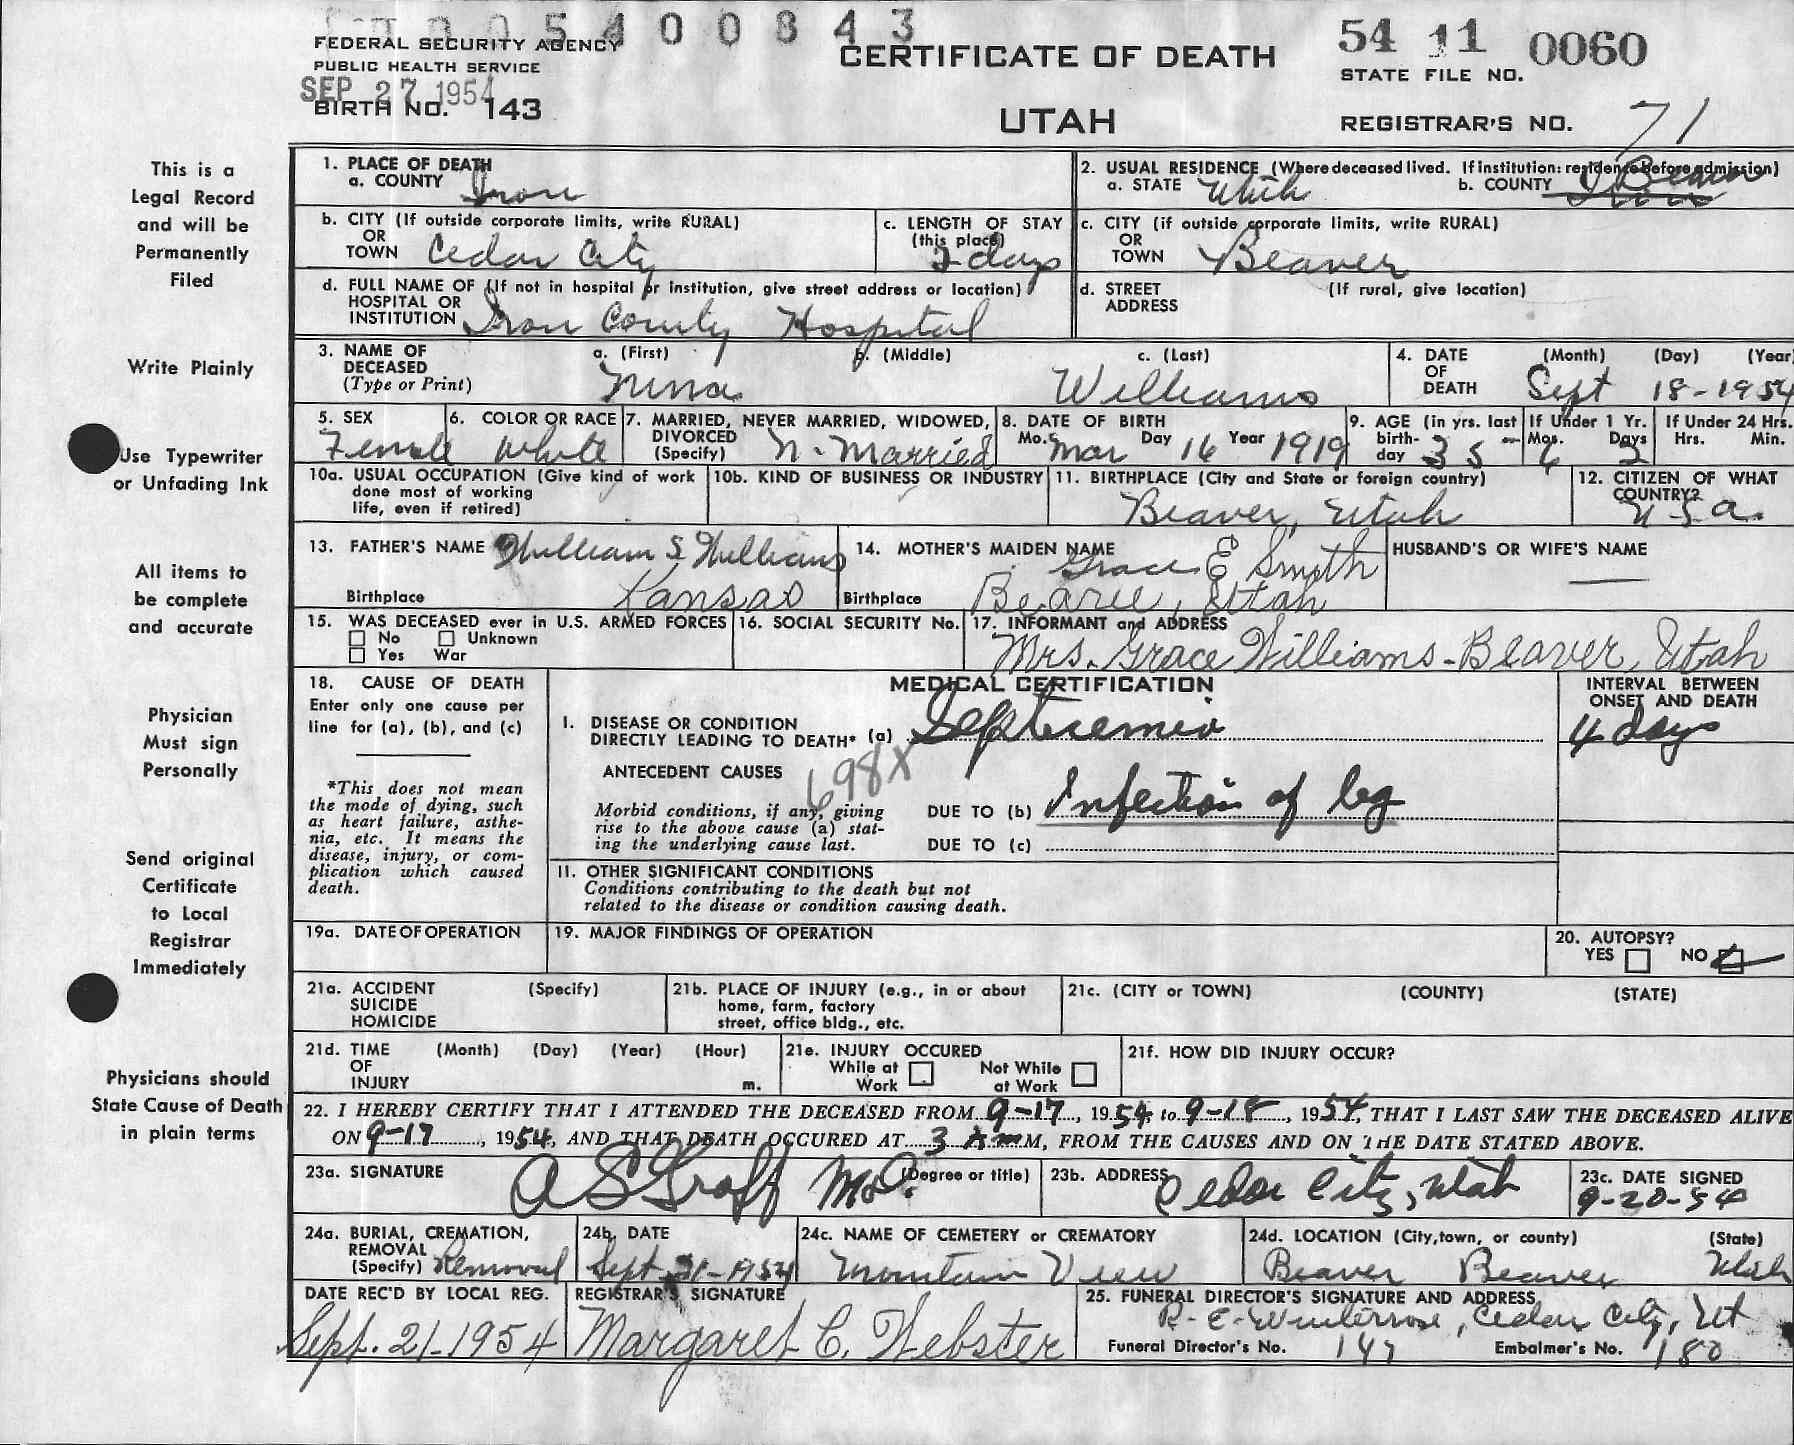 0 0 5 4 0 0 8 4 3
FEDERAL SECURITY AGENCY
PUBLIC HEALTH SERVICE
SEP 27 1954
BIRTH NO. 143
CERTIFICATE OF DEATH
UTAH
54 11 0060
STATE FILE NO.
REGISTRAR'S NO. 71
This is a
Legal Record
and will be
Permanently
Filed
Write Plainly
Use Typewriter
or Unfading Ink
All items to
be complete
and accurate
Physician
Must sign
Personally
Send original
Certificate
to Local
Registrar
Immediately
Physicians should
State Cause of Death
in plain terms
1. PLACE OF DEATH
a. COUNTY Iron
2. USUAL RESIDENCE (Where deceased lived. If institution: residence before admission)
a. STATE Utah b. COUNTY Iron Beaver
b. CITY (If outside corporate limits, write RURAL)
OR
TOWN Cedar City
c. LENGTH OF STAY
(this place)
2 days
c. CITY (if outside corporate limits, write RURAL)
OR
TOWN Beaver
d. FULL NAME OF (If not in hospital or institution, give street address or location)
HOSPITAL OR
INSTITUTION Iron County Hospital
d. STREET (If rural, give location)
ADDRESS
3. NAME OF a. (First) b. (Middle) c. (Last)
DECEASED
(Type or Print) Nina Williams
4. DATE (Month) (Day) (Year
OF
DEATH Sept 18-1954
5. SEX
Female
6. COLOR OR RACE
White
7. MARRIED, NEVER MARRIED, WIDOWED,
DIVORCED
(Specify) N. Married
8. DATE OF BIRTH
Mo. Mar Day 16 Year 1919
9. AGE (in yrs. last
birth-
day 35
If Under 1 Yr.
Mos. Days
6 2
If Under 24 Hrs.
Hrs. Min.
10a. USUAL OCCUPATION (Give kind of work
done most of working
life, even if retired)
10b. KIND OF BUSINESS OR INDUSTRY
11. BIRTHPLACE (City and State or foreign country)
Beaver, Utah
12. CITIZEN OF WHAT
COUNTRY?
U.S.A.
13. FATHER'S NAME William S. Williams
Birthplace Kansas
14. MOTHER'S MAIDEN NAME
Grace E Smith
Birthplace Beaver, Utah
HUSBAND'S OR WIFE'S NAME
—
15. WAS DECEASED ever in U.S. ARMED FORCES
No Unknown
Yes War
16. SOCIAL SECURITY No.
17. INFORMANT and ADDRESS
Mrs. Grace Williams - Beaver, Utah
18. CAUSE OF DEATH
Enter only one cause per
line for (a), (b), and (c)
*This does not mean
the mode of dying, such
as heart failure, asthe-
nia, etc. It means the
disease, injury, or com-
plication which caused
death.
MEDICAL CERTIFICATION
I. DISEASE OR CONDITION
DIRECTLY LEADING TO DEATH* (a) Septicemia
ANTECEDENT CAUSES 698X
Morbid conditions, if any, giving
rise to the above cause (a) stat-
ing the underlying cause last.
DUE TO (b) Infection of leg
DUE TO (c)
INTERVAL BETWEEN
ONSET AND DEATH
4 days
11. OTHER SIGNIFICANT CONDITIONS
Conditions contributing to the death but not
related to the disease or condition causing death.
19a. DATE OF OPERATION
19. MAJOR FINDINGS OF OPERATION
20. AUTOPSY?
YES NO
21a. ACCIDENT (Specify)
SUICIDE
HOMICIDE
21b. PLACE OF INJURY (e.g., in or about
home, farm, factory
street, office bldg., etc.
21c. (CITY or TOWN) (COUNTY) (STATE)
21d. TIME (Month) (Day) (Year) (Hour)
OF
INJURY m.
21e. INJURY OCCURED
While at Work
Not While at Work
21f. HOW DID INJURY OCCUR?
22. I HEREBY CERTIFY THAT I ATTENDED THE DECEASED FROM 9-17, 1954, to 9-18, 1954, THAT I LAST SAW THE DECEASED ALIVE
ON 9-17, 1954, AND THAT DEATH OCCURED AT 3 A m M, FROM THE CAUSES AND ON THE DATE STATED ABOVE.
23a. SIGNATURE (Degree or title)
A S Graff M.D.
23b. ADDRESS
Cedar City, Utah
23c. DATE SIGNED
9-20-54
24a. BURIAL, CREMATION,
REMOVAL
(Specify) Removal
24b. DATE
Sept 21-1954
24c. NAME OF CEMETERY or CREMATORY
Mountain View
24d. LOCATION (City, town, or county) (State)
Beaver Beaver Utah
DATE REC'D BY LOCAL REG.
Sept. 21-1954
REGISTRAR'S SIGNATURE
Margaret C. Webster
25. FUNERAL DIRECTOR'S SIGNATURE AND ADDRESS
R. E. Winterrose, Cedar City, Ut
Funeral Director's No. 147 Embalmer's No. 180